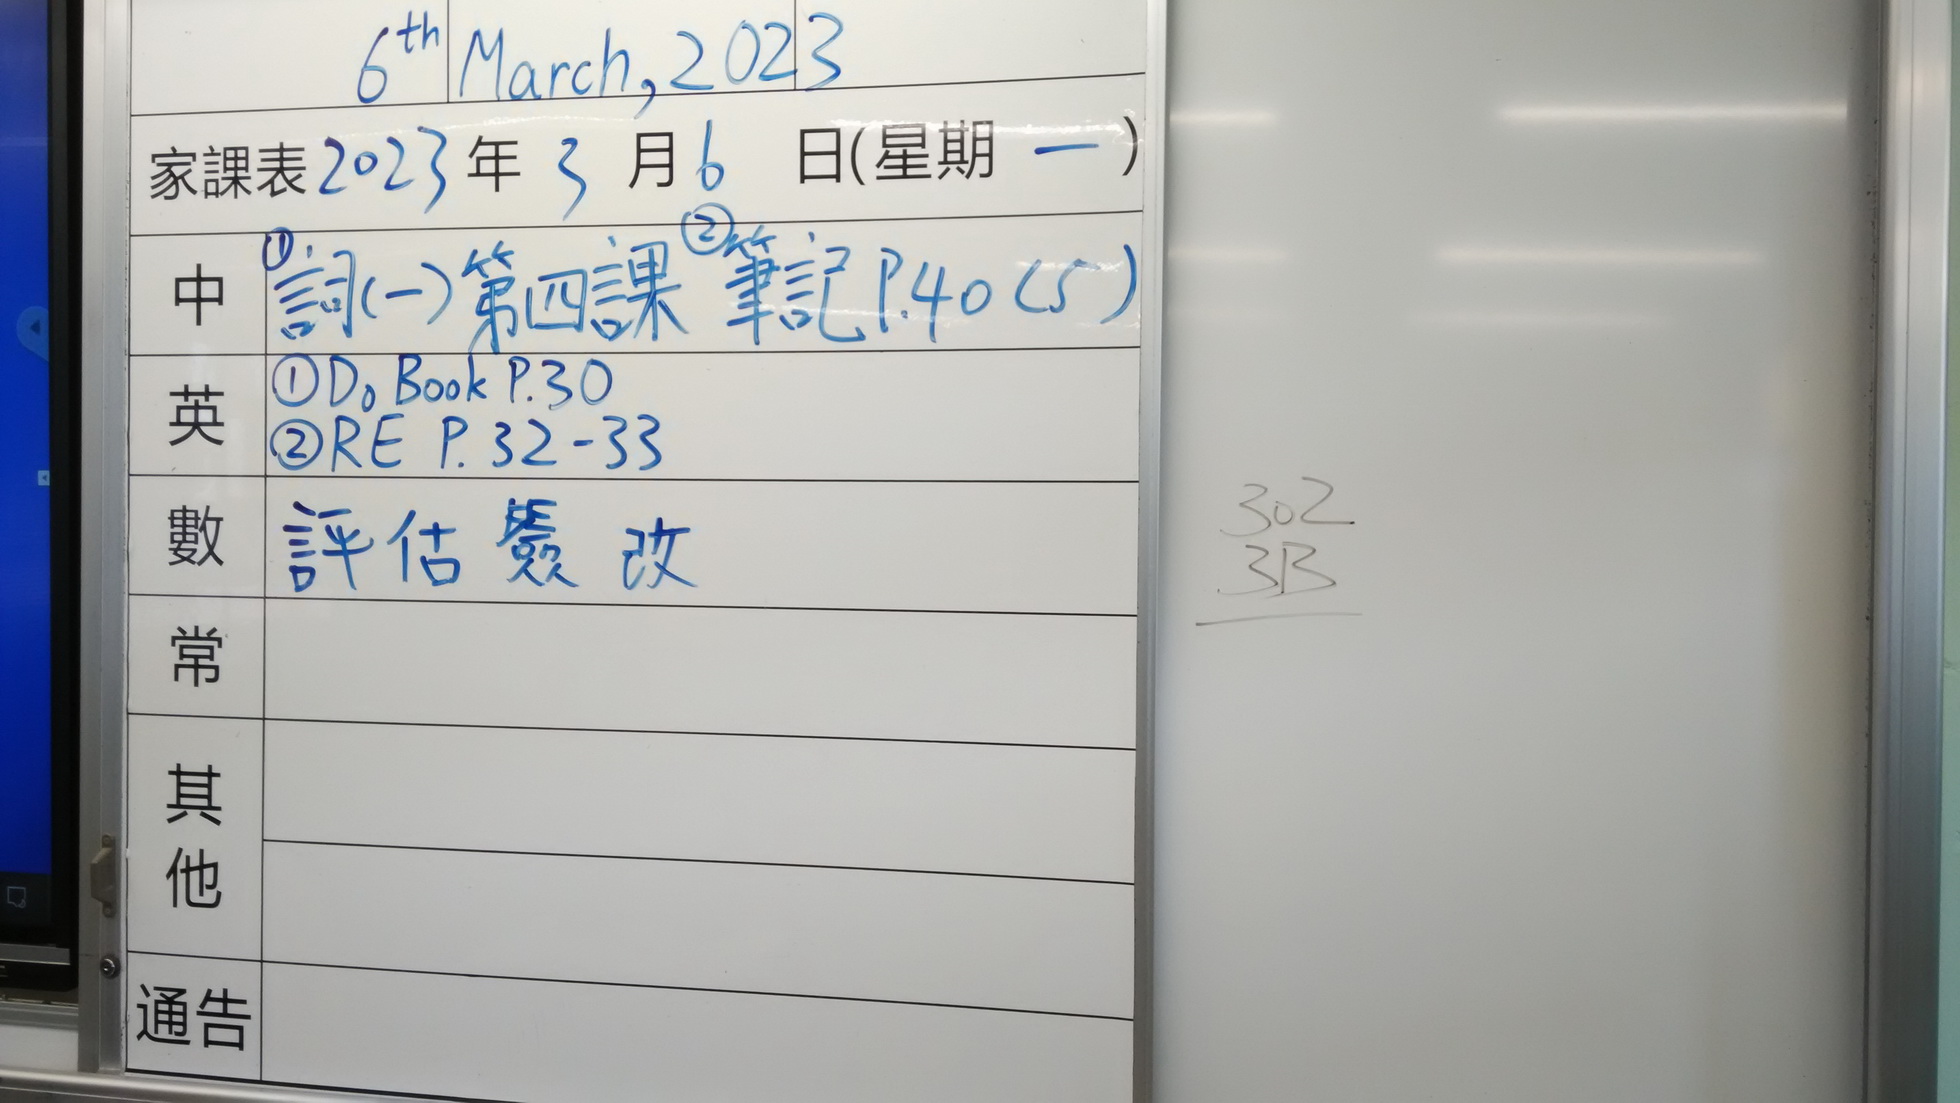 6th March, 2023
家課表 2023 年 3 月 6 日(星期 一)
中 ①詞(一)第四課 ②筆記 P.40 (5)
英 ①Do Book P.30
②RE P. 32-33
數 評估簽改
常
其他
通告
302
3B